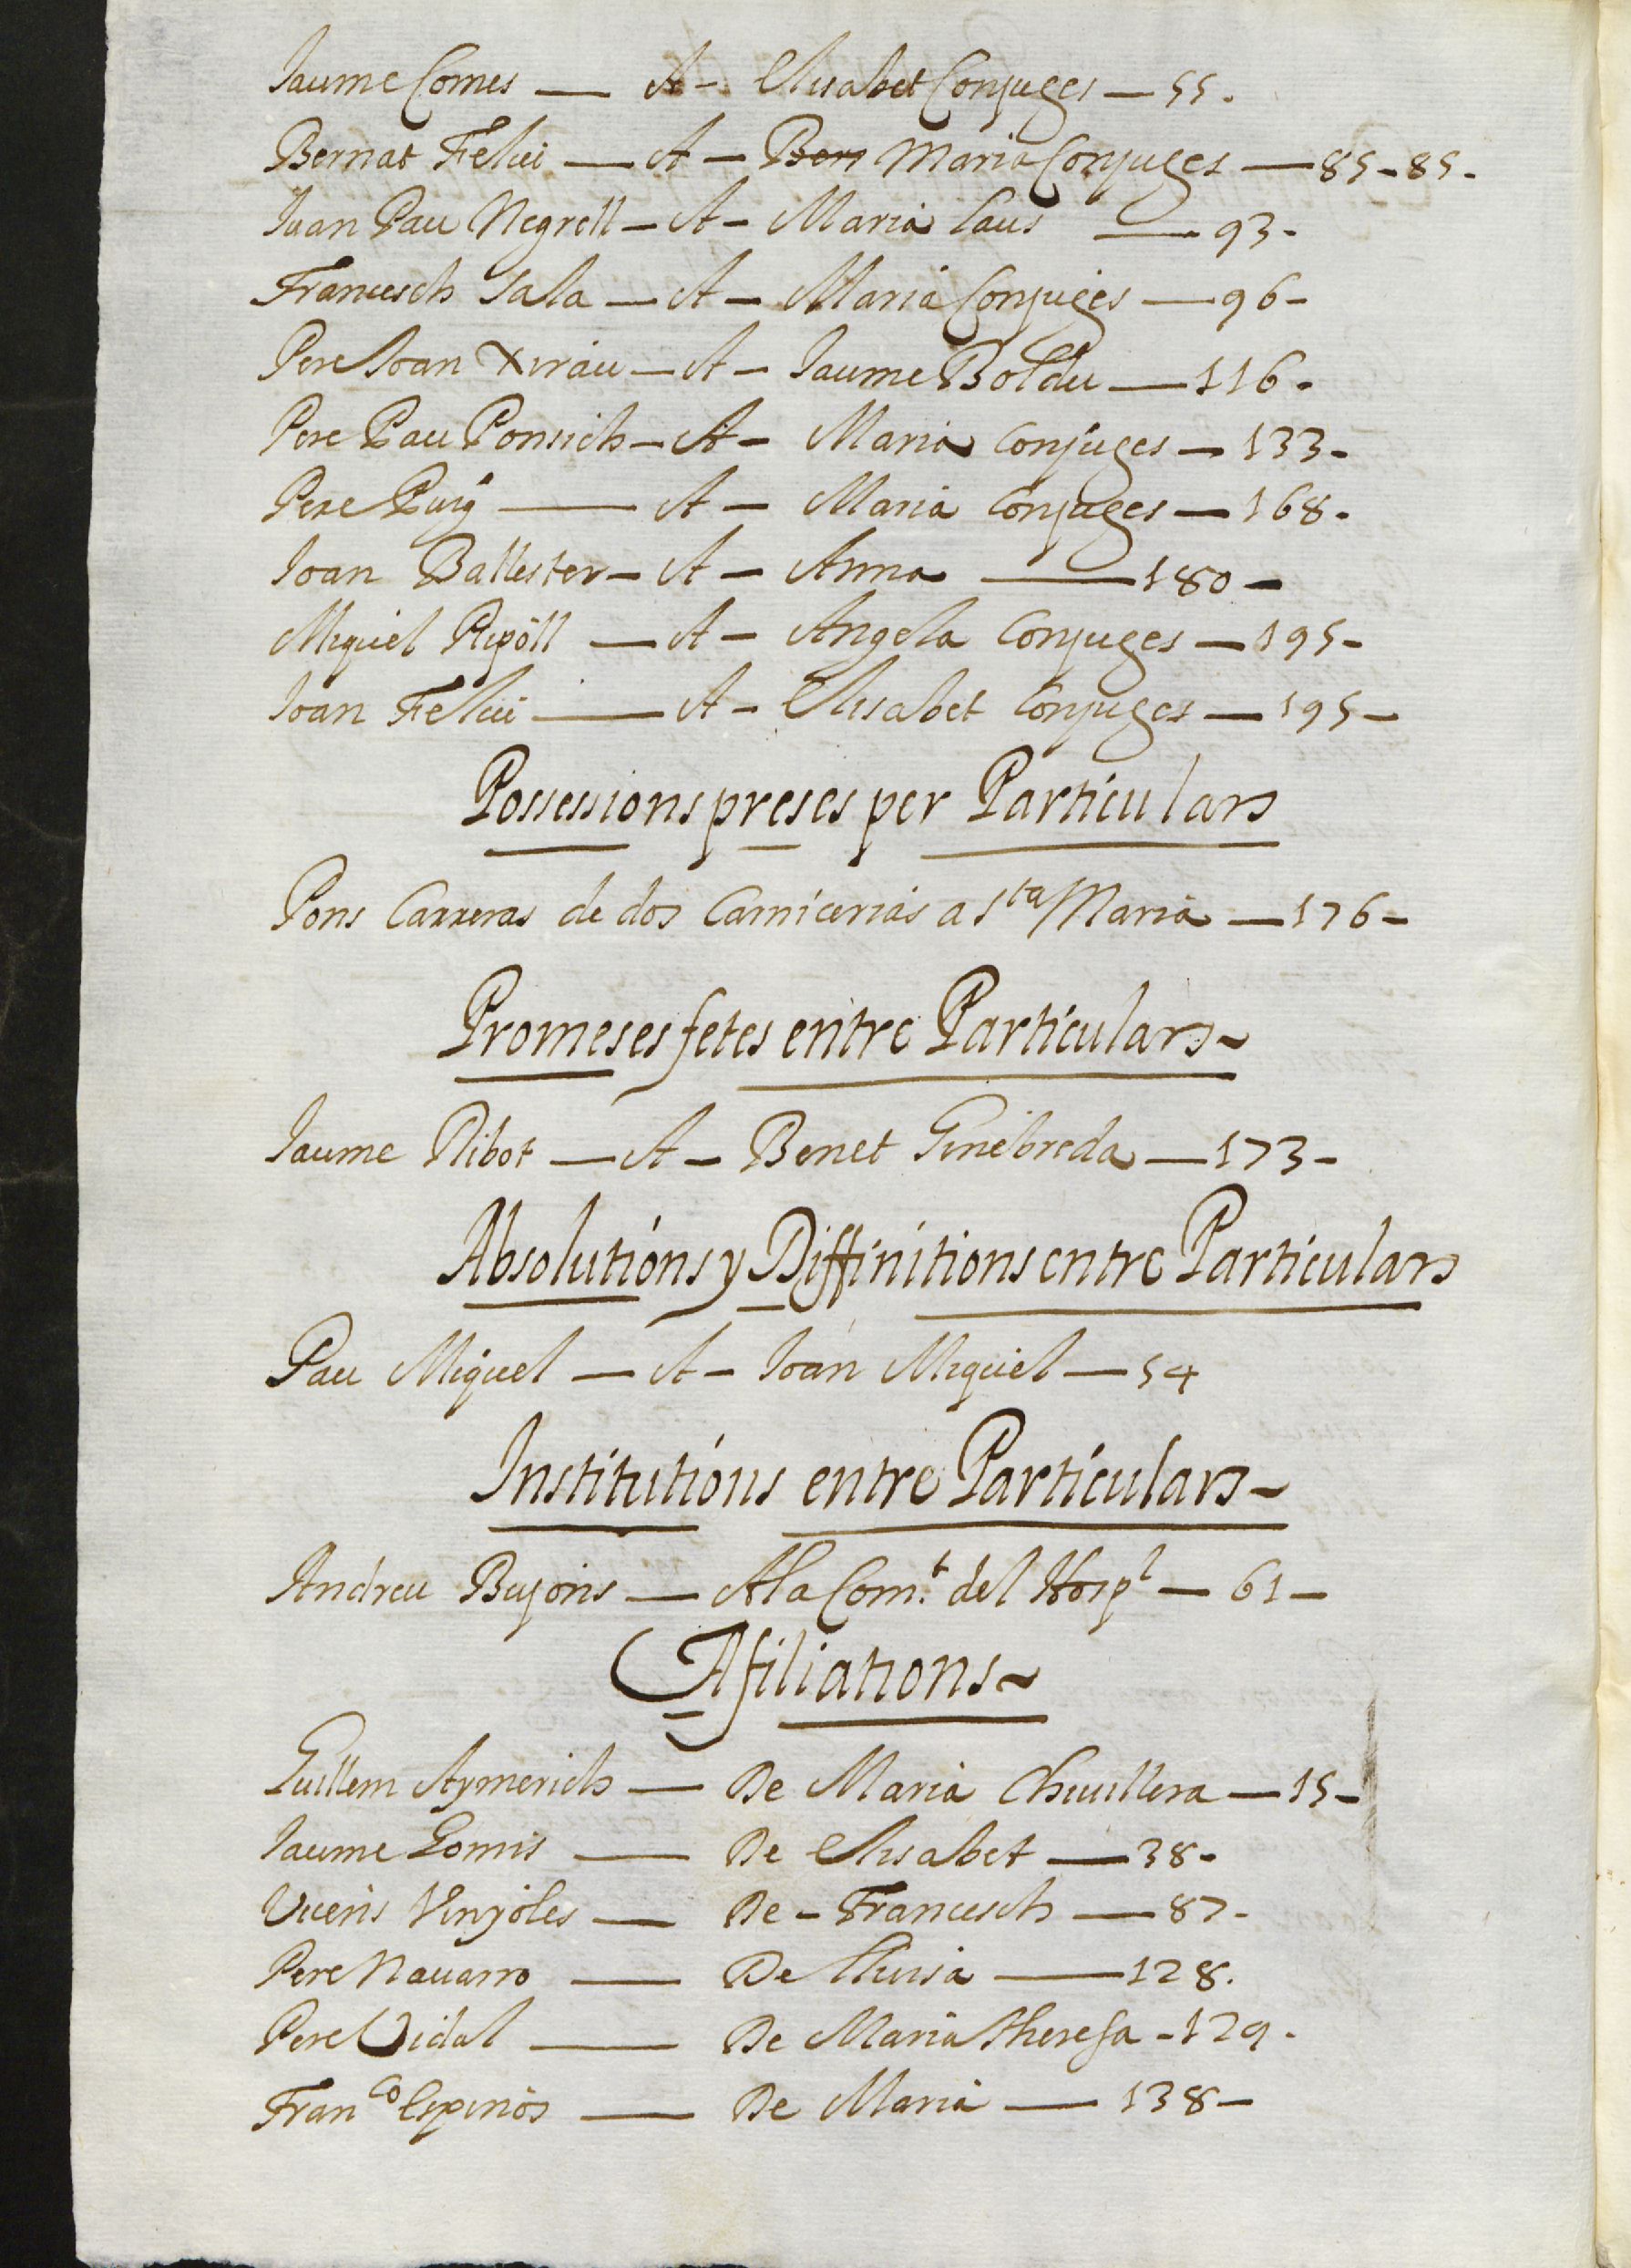 Jaume Comes — A — Elisabet Conjuges — 55.
Bernat Feliu — A — Bern Maria Conjuges — 85 - 85 -
Juan Pau Negrell — A — Maria Caus — 93 -
Francesch Sala — A — Maria Conjuges — 96 -
Pere Joan Xirau — A — Jaume Boldu — 116 -
Pere Pau Ponsich — A — Maria Conjuges — 133 -
Pere Puig — A — Maria Conjuges — 168 -
Joan Ballester — A — Anna — 180 -
Miquel Ripoll — A — Angela Conjuges — 195 -
Joan Feliu — A — Elisabet Conjuges — 195 -
Possessions preses per Particulars
Pons Carreras de dos Carnicerias a Sta Maria — 176 -
Promeses fetes entre Particulars
Jaume Ribot — A — Benet Ginebreda — 173 -
Absolutions y Diffinitions entre Particulars
Pau Miquel — A — Joan Miquel — 54
Institutions entre Particulars
Andreu Bujons — A la Com.t del Hospl — 61 -
Afiliations
Guillem Aymerich — De Maria — 15 -
Jaume Gomis — De Elisabet — 38 -
Vicens Vinyoles — De - Francesch — 87 -
Pere Navarro — De Lluisa — 128.
Pere Vidal — De Maria Theresa - 129 -
Franco Espinos — De Maria — 138 -